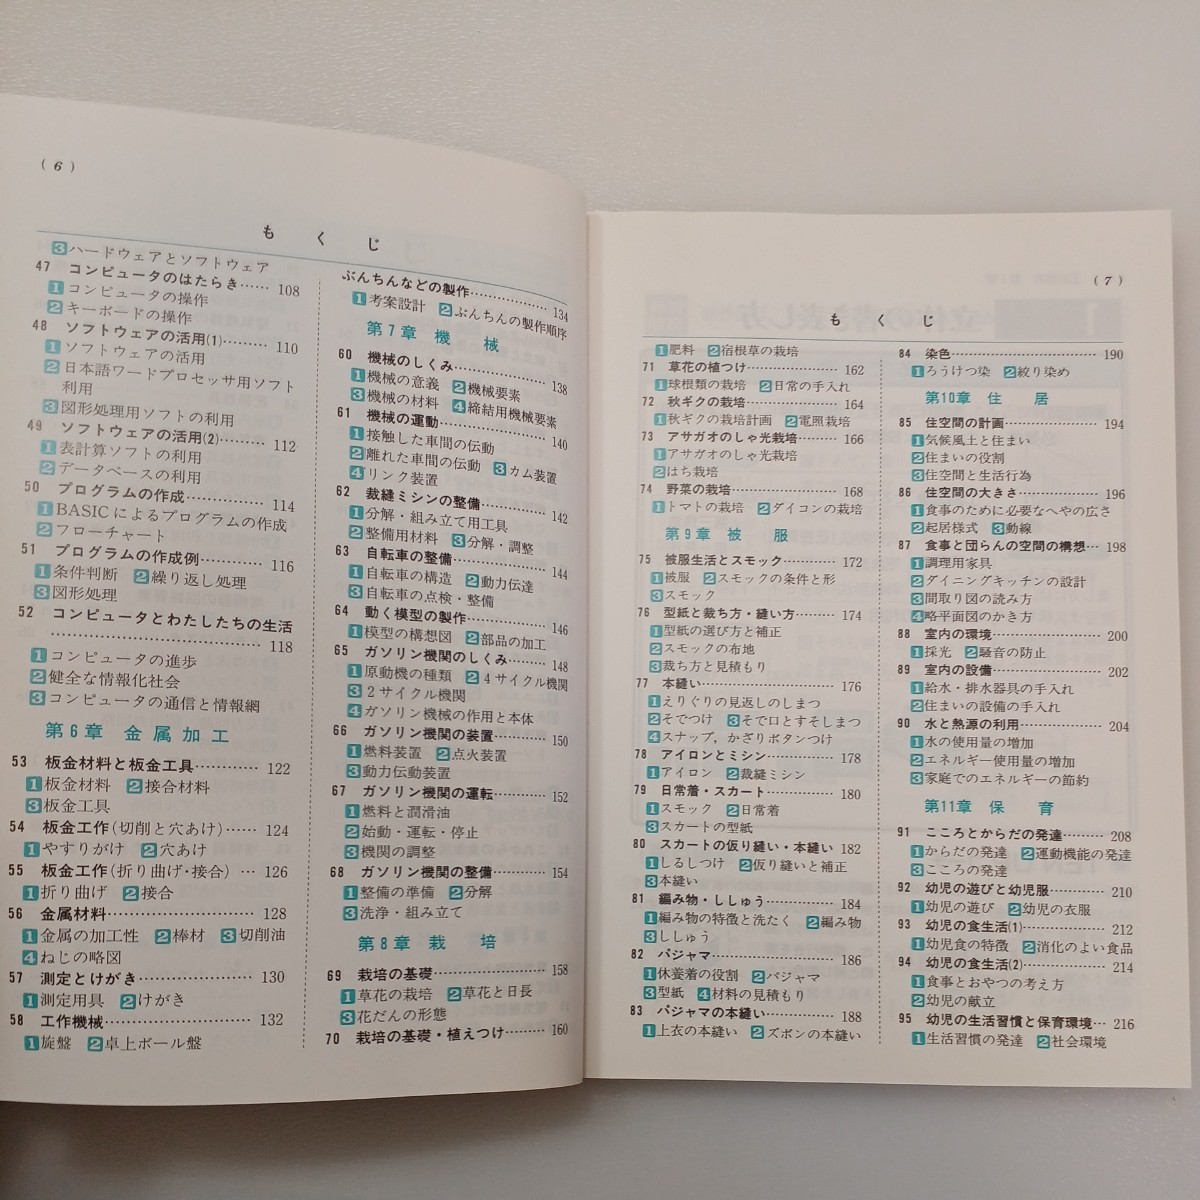 (6)
もくじ
3ハードウェアとソフトウェア
47 コンピュータのはたらき…… 108
1コンピュータの操作
2キーボードの操作
48 ソフトウェアの活用(1)……… 110
1ソフトウェアの活用
2日本語ワードプロセッサ用ソフト
利用
3図形処理用ソフトの利用
49 ソフトウェアの活用(2)……… 112
1表計算ソフトの利用
2データベースの利用
50 プログラムの作成…………… 114
1BASICによるプログラムの作成
2フローチャート
51 プログラムの作成例………… 116
1条件判断 2繰り返し処理
3図形処理
52 コンピュータとわたしたちの生活
………………………… 118
1コンピュータの進歩
2健全な情報化社会
3コンピュータの通信と情報網
第6章 金属加工
53 板金材料と板金工具………… 122
1板金材料 2接合材料
3板金工具
54 板金工作(切削と穴あけ)…… 124
1やすりがけ 2穴あけ
55 板金工作(折り曲げ・接合)… 126
1折り曲げ 2接合
56 金属材料……………………… 128
1金属の加工性 2棒材 3切削油
4ねじの略図
57 測定とけがき………………… 130
1測定用具 2けがき
58 工作機械……………………… 132
1旋盤 2卓上ボール盤
ぶんちんなどの製作…………… 134
1考案設計 2ぶんちんの製作順序
第7章 機械
60 機械のしくみ………………… 138
1機械の意義 2機械要素
3機械の材料 4締結用機械要素
61 機械の運動…………………… 140
1接触した車間の伝動
2離れた車間の伝動 3カム装置
4リンク装置
62 裁縫ミシンの整備…………… 142
1分解・組み立て用工具
2整備用材料 3分解・調整
63 自転車の整備………………… 144
1自転車の構造 2動力伝達
3自転車の点検・整備
64 動く模型の製作……………… 146
1模型の構想図 2部品の加工
65 ガソリン機関のしくみ……… 148
1原動機の種類 24サイクル機関
32サイクル機関
4ガソリン機械の作用と本体
66 ガソリン機関の装置………… 150
1燃料装置 2点火装置
3動力伝動装置
67 ガソリン機関の運転………… 152
1燃料と潤滑油
2始動・運転・停止
3機関の調整
68 ガソリン機関の整備………… 154
1整備の準備 2分解
3洗浄・組み立て
第8章 栽培
69 栽培の基礎…………………… 158
1草花の栽培 2草花と日長
3花だんの形態
70 栽培の基礎・植えつけ……… 160
(7)
もくじ
1肥料 2宿根草の栽培
71 草花の植つけ………………… 162
1球根類の栽培 2日常の手入れ
72 秋ギクの栽培………………… 164
1秋ギクの栽培計画 2電照栽培
73 アサガオのしゃ光栽培……… 166
1アサガオのしゃ光栽培
2はち栽培
74 野菜の栽培…………………… 168
1トマトの栽培 2ダイコンの栽培
第9章 被服
75 被服生活とスモック………… 172
1被服 2スモックの条件と形
3スモック
76 型紙と裁ち方・縫い方……… 174
1型紙の選び方と補正
2スモックの布地
3裁ち方と見積もり
77 本縫い………………………… 176
1えりぐりの見返しのしまつ
2そでつけ 3そで口とすそしまつ
4スナップ，かざりボタンつけ
78 アイロンとミシン…………… 178
1アイロン 2裁縫ミシン
79 日常着・スカート…………… 180
1スモック 2日常着
3スカートの型紙
80 スカートの仮り縫い・本縫い 182
1しるしつけ 2仮り縫いと補正
3本縫い
81 編み物・ししゅう…………… 184
1編み物の特徴と洗たく 2編み物
3ししゅう
82 パジャマ……………………… 186
1休養着の役割 2パジャマ
3型紙 4材料の見積もり
83 パジャマの本縫い…………… 188
1上衣の本縫い 2ズボンの本縫い
84 染色…………………………… 190
1ろうけつ染 2絞り染め
第10章 住居
85 住空間の計画………………… 194
1気候風土と住まい
2住まいの役割
3住空間と生活行為
86 住空間の大きさ……………… 196
1食事のために必要なへやの広さ
2起居様式 3動線
87 食事と団らんの空間の構想… 198
1調理用家具
2ダイニングキッチンの設計
3間取り図の読み方
4略平面図のかき方
88 室内の環境…………………… 200
1採光 2騒音の防止
89 室内の設備…………………… 202
1給水・排水器具の手入れ
2住まいの設備の手入れ
90 水と熱源の利用……………… 204
1水の使用量の増加
2エネルギー使用量の増加
3家庭でのエネルギーの節約
第11章 保育
91 こころとからだの発達……… 208
1からだの発達 2運動機能の発達
3こころの発達
92 幼児の遊びと幼児服………… 210
1幼児の遊び 2幼児の衣服
93 幼児の食生活(1)……………… 212
1幼児食の特徴 2消化のよい食品
94 幼児の食生活(2)……………… 214
1食事とおやつの考え方
2幼児の献立
95 幼児の生活習慣と保育環境… 216
1生活習慣の発達 2社会環境